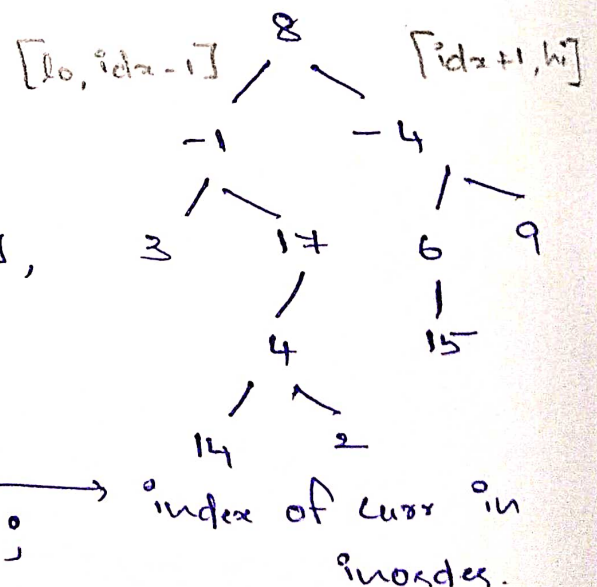 8
[lo, idx-1] [idx+1, hi]
-1 -4
3 17 6 9
,
4 15
14 2
index of curr in
;
inorder.